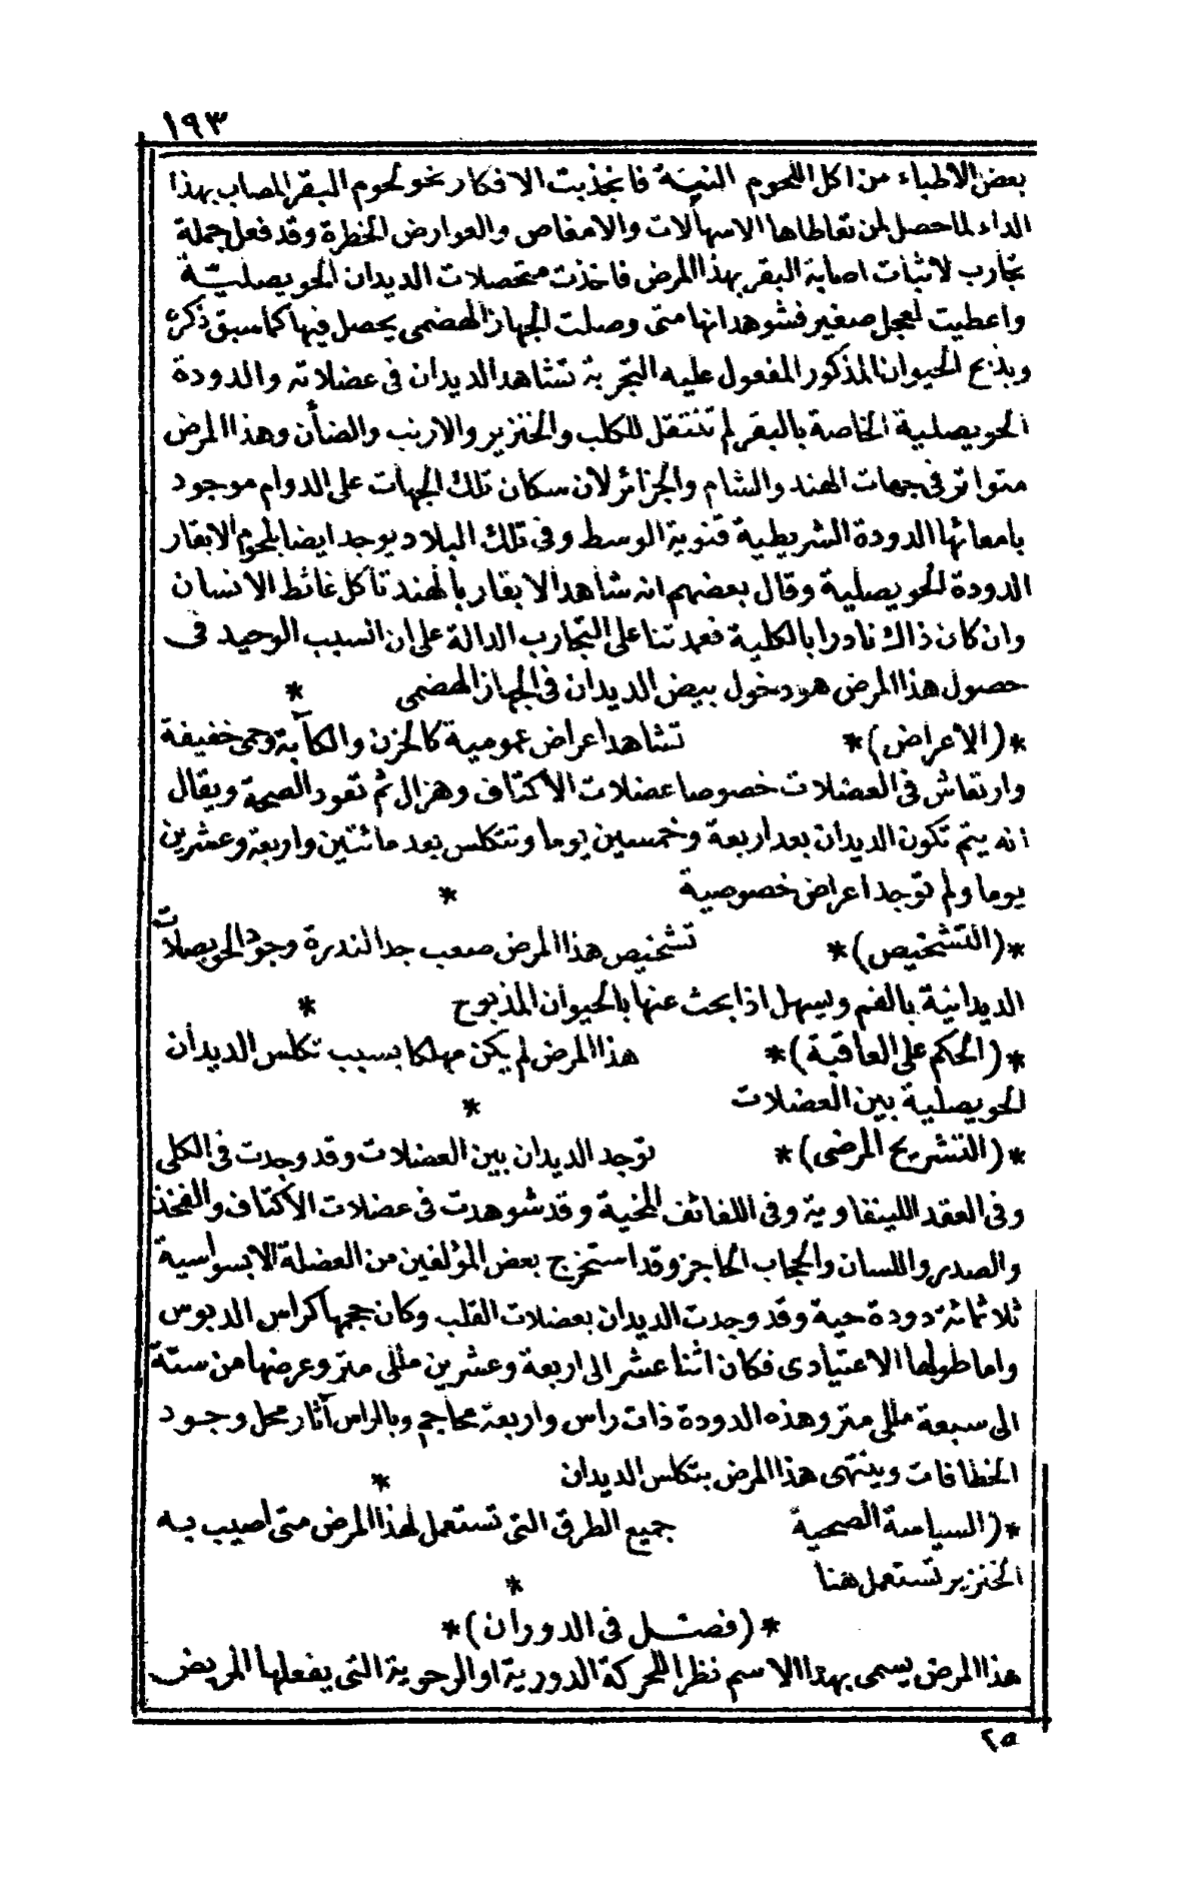 ١٩٣
بعض الاطباء من اكل اللحوم النيئة فانجذبت الافكار نحو لحوم البقر المصاب بهذا
الداء لما حصل لمن تعاطاها الاسهالات والامغاص والعوارض الخطرة وقد فعل جملة
تجارب لاثبات اصابة البقر بهذا المرض فاتخذت متحصلات الديدان الحويصلية
واعطيت لعجل صغير فشوهد انها متى وصلت الجهاز الهضمى يحصل فيها كما سبق ذكره
وبذبح الحيوان المذكور المفعول عليه التجربة تشاهد الديدان فى عضلاته والدودة
الحويصلية الخاصة بالبقر لم تنتقل للكلب والخنزير والارنب والضأن وهذا المرض
متواتر فى جهات الهند والشام والجزائر لان سكان تلك الجهات على الدوام موجود
بامعائها الدودة الشريطية قنوية الوسط وفى تلك البلاد يوجد ايضا بلحوم الابقار
الدودة الحويصلية وقال بعضهم انه شاهد الابقار بالهند تأكل غائط الانسان
وان كان ذاك نادرا بالكلية فعمدتنا على التجارب الدالة على ان السبب الوحيد فى
حصول هذا المرض هو دخول بيض الديدان فى الجهاز الهضمى *
*(الاعراض)* تشاهد اعراض عمومية كالحزن والكآبة وحمى خفيفة
وارتعاش فى العضلات خصوصا عضلات الاكتاف وهزال ثم تعود الصحة ويقال
انه يتم تكون الديدان بعد اربعة وخمسين يوما وتتكلس بعد مائتين واربعة وعشرين
يوما ولم توجد اعراض خصوصية *
*(التشخيص)* تشخيص هذا المرض صعب جدا لندرة وجود الحويصلات
الديدانية بالفم ويسهل اذا بحث عنها بالحيوان المذبوح *
*(الحكم على العاقبة)* هذا المرض لم يكن مهلكا بسبب تكلس الديدان
الحويصلية بين العضلات *
*(التشريح المرضى)* توجد الديدان بين العضلات وقد وجدت فى الكلى
وفى العقد اللينفاوية وفى اللفائف المخية وقد شوهدت فى عضلات الاكتاف والفخذ
والصدر واللسان والحجاب الحاجز وقد استخرج بعض المؤلفين من العضلة الابسواسية
ثلاثمائة دودة حية وقد وجدت الديدان بعضلات القلب وكان حجمها كراس الدبوس
واما طولها الاعتيادى فكان اثنا عشر الى اربعة وعشرين مللى متر وعرضها من ستة
الى سبعة مللى متر وهذه الدودة ذات راس واربعة محاجم وبالراس آثار محل وجود
الخطافات وينتهى هذا المرض بتكلس الديدان *
*(السياسة الصحية جميع الطرق التى تستعمل لهذا المرض متى اصيب به
الخنزير تستعمل هنا *
*(فصل فى الدوران)*
هذا المرض يسمى بهذا الاسم نظرا للحركة الدورية او الرحوية التى يفعلها المريض
٢٥